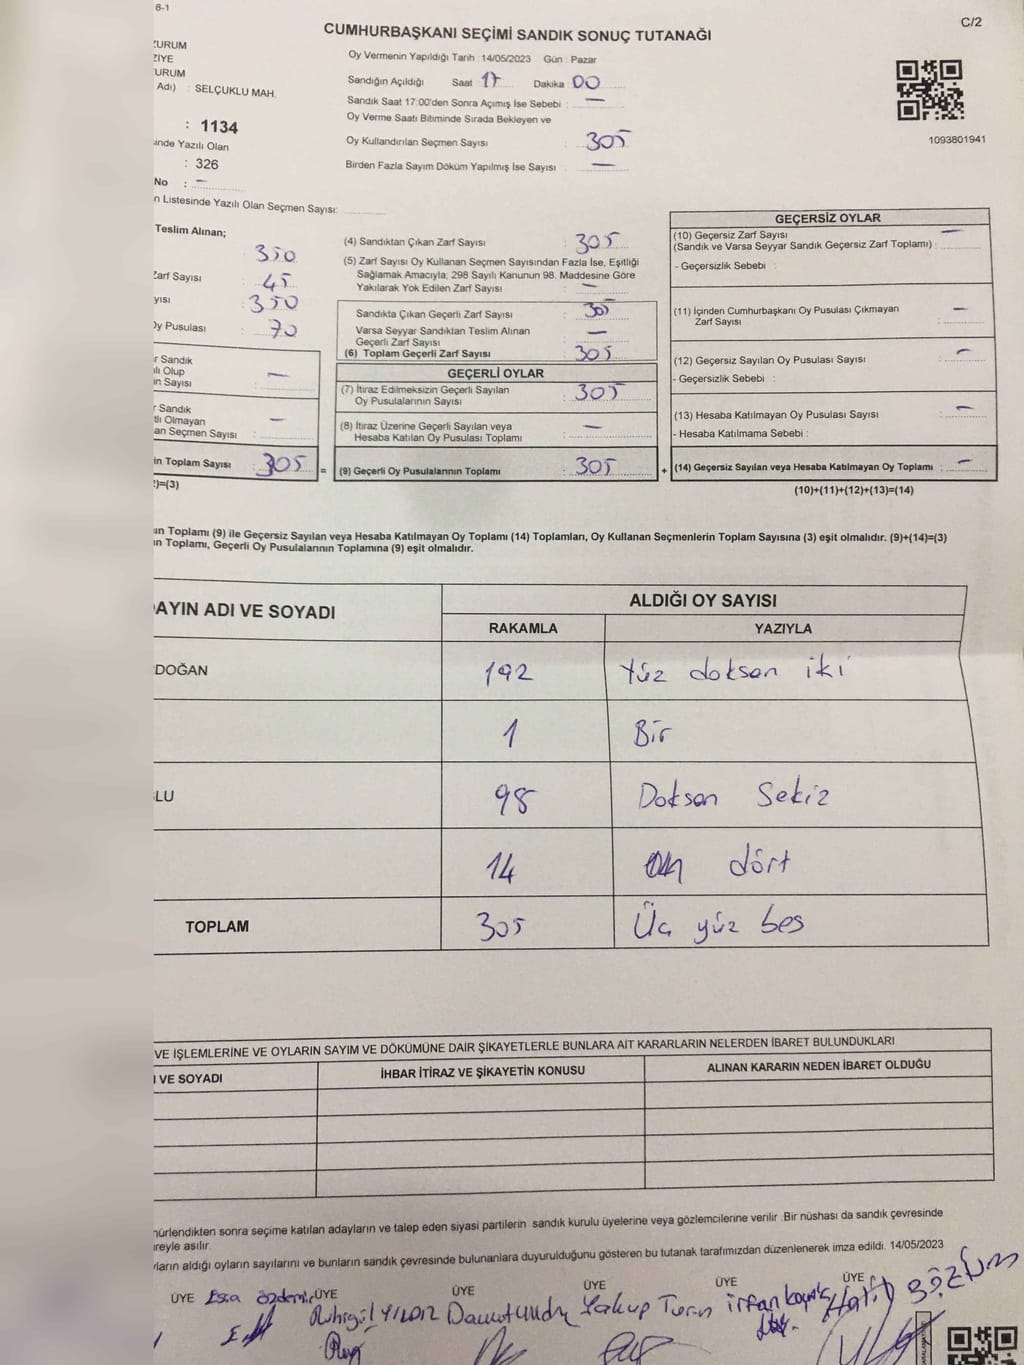 8-1
CUMHURBAŞKANI SEÇİMİ SANDIK SONUÇ TUTANAĞI
C/2
ZURUM
ZİYE
URUM
Adı) : SELÇUKLU MAH.
: 1134
inde Yazılı Olan
: 326
No : —
n Listesinde Yazılı Olan Seçmen Sayısı:
Oy Vermenin Yapıldığı Tarih : 14/05/2023 Gün : Pazar
Sandığın Açıldığı Saat : 17 Dakika : 00
Sandık Saat 17:00'den Sonra Açımış İse Sebebi : —
Oy Verme Saati Bitiminde Sırada Bekleyen ve
Oy Kullandırılan Seçmen Sayısı : 305
Birden Fazla Sayım Döküm Yapılmış İse Sayısı : —
1093801941
Teslim Alınan;
350
Zarf Sayısı : 45
yısı : 350
Oy Pusulası : 70
r Sandık
ılı Olup
ın Sayısı : —
r Sandık
tlı Olmayan
an Seçmen Sayısı : —
in Toplam Sayısı : 305 =
2)=(3)
(4) Sandıktan Çıkan Zarf Sayısı : 305
(5) Zarf Sayısı Oy Kullanan Seçmen Sayısından Fazla İse, Eşitliği
Sağlamak Amacıyla, 298 Sayılı Kanunun 98. Maddesine Göre
Yakılarak Yok Edilen Zarf Sayısı : —
Sandıkta Çıkan Geçerli Zarf Sayısı : 305
Varsa Seyyar Sandıktan Teslim Alınan
Geçerli Zarf Sayısı : —
(6) Toplam Geçerli Zarf Sayısı : 305
GEÇERLİ OYLAR
(7) İtiraz Edilmeksizin Geçerli Sayılan
Oy Pusulalarının Sayısı : 305
(8) İtiraz Üzerine Geçerli Sayılan veya
Hesaba Katılan Oy Pusulası Toplamı : —
(9) Geçerli Oy Pusulalarının Toplamı : 305 +
GEÇERSİZ OYLAR
(10) Geçersiz Zarf Sayısı
(Sandık ve Varsa Seyyar Sandık Geçersiz Zarf Toplamı) : —
- Geçersizlik Sebebi :
(11) İçinden Cumhurbaşkanı Oy Pusulası Çıkmayan
Zarf Sayısı : —
(12) Geçersiz Sayılan Oy Pusulası Sayısı : —
- Geçersizlik Sebebi :
(13) Hesaba Katılmayan Oy Pusulası Sayısı : —
- Hesaba Katılmama Sebebi :
(14) Geçersiz Sayılan veya Hesaba Katılmayan Oy Toplamı : —
(10)+(11)+(12)+(13)=(14)
ın Toplamı (9) ile Geçersiz Sayılan veya Hesaba Katılmayan Oy Toplamı (14) Toplamları, Oy Kullanan Seçmenlerin Toplam Sayısına (3) eşit olmalıdır. (9)+(14)=(3)
ın Toplamı, Geçerli Oy Pusulalarının Toplamına (9) eşit olmalıdır.
AYIN ADI VE SOYADI
ALDIĞI OY SAYISI
RAKAMLA YAZIYLA
DOĞAN 192 Yüz doksan iki
1 Bir
LU 98 Doksan Sekiz
14 on dört
TOPLAM 305 Üç yüz beş
VE İŞLEMLERİNE VE OYLARIN SAYIM VE DÖKÜMÜNE DAİR ŞİKAYETLERLE BUNLARA AİT KARARLARIN NELERDEN İBARET BULUNDUKLARI
I VE SOYADI İHBAR İTİRAZ VE ŞİKAYETİN KONUSU ALINAN KARARIN NEDEN İBARET OLDUĞU
nürlendikten sonra seçime katılan adayların ve talep eden siyasi partilerin sandık kurulu üyelerine veya gözlemcilerine verilir. Bir nüshası da sandık çevresinde
ireyle asılır.
ıların aldığı oyların sayılarını ve bunların sandık çevresinde bulunanlara duyurulduğunu gösteren bu tutanak tarafımızdan düzenlenerek imza edildi. 14/05/2023
ÜYE ÜYE ÜYE ÜYE ÜYE ÜYE
Esra özdemir Ruhsgül YILDIZ Yakup Turan irfan Halil BOZKUM